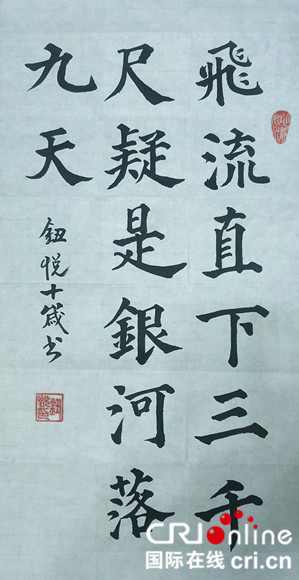 飛流直下三千
尺疑是銀河落
九天
鈕悅十歲书
CRIonline
国际在线 cri.cn